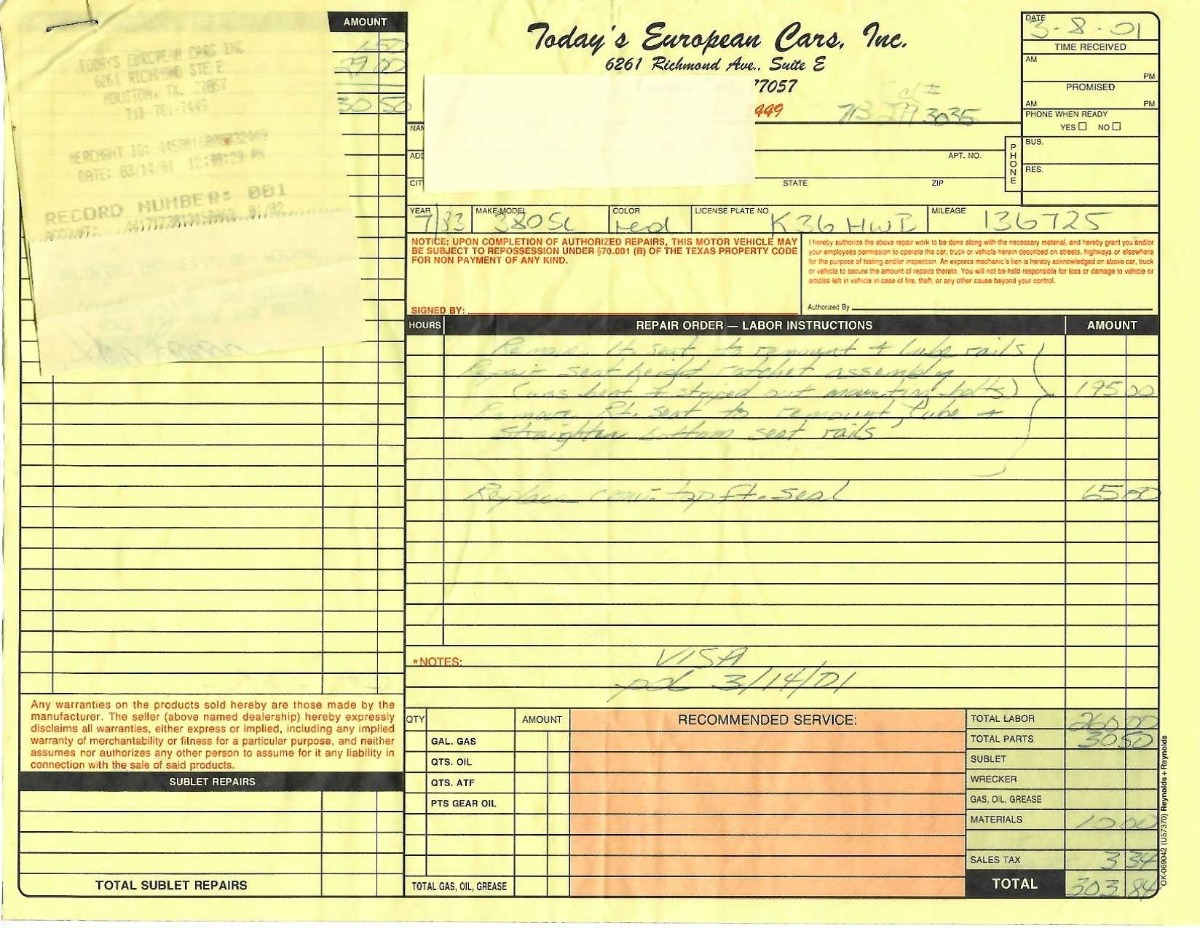 AMOUNT
1 50
29 00
30 50
TODAY'S EUROPEAN CARS INC
6261 RICHMOND STE E
HOUSTON, TX. 77057
713-781-7449
MERCHANT ID:
DATE: 03/14/01 12:
PM
RECORD NUMBER: 001
ACCOUNT:
01/02
Today's European Cars, Inc.
6261 Richmond Ave., Suite E
77057
449
Cel#
3035
DATE
3-8-01
TIME RECEIVED
AM
PM
PROMISED
AM PM
PHONE WHEN READY
YES NO
NAM
ADD
APT. NO.
CITY
STATE
ZIP
PHONE
BUS.
RES.
YEAR 7/83
MAKE-MODEL 380SL
COLOR red
LICENSE PLATE NO. K36 HWB
MILEAGE 136725
NOTICE: UPON COMPLETION OF AUTHORIZED REPAIRS, THIS MOTOR VEHICLE MAY
BE SUBJECT TO REPOSSESSION UNDER §70.001 (B) OF THE TEXAS PROPERTY CODE
FOR NON PAYMENT OF ANY KIND.
SIGNED BY:
I hereby authorize the above repair work to be done along with the necessary material, and hereby grant you and/or
your employees permission to operate the car, truck or vehicle herein described on streets, highways or elsewhere
for the purpose of testing and/or inspection. An express mechanic's lien is hereby acknowledged on above car, truck
or vehicle to secure the amount of repairs thereto. You will not be held responsible for loss or damage to vehicle or
articles left in vehicle in case of fire, theft, or any other cause beyond your control.
Authorized By
HOURS REPAIR ORDER — LABOR INSTRUCTIONS AMOUNT
Remove lt seat to remount + lube rails
Repair seat height ratchet assembly
(was bent + striped out mounting bolts) 195 00
Remove Rt. seat to remount, lube +
straighten bottom seat rails
Replace conv. top ft. seal 65 00
*NOTES:
VISA
pd 3/14/01
Any warranties on the products sold hereby are those made by the
manufacturer. The seller (above named dealership) hereby expressly
disclaims all warranties, either express or implied, including any implied
warranty of merchantability or fitness for a particular purpose, and neither
assumes nor authorizes any other person to assume for it any liability in
connection with the sale of said products.
SUBLET REPAIRS
TOTAL SUBLET REPAIRS
QTY AMOUNT
GAL. GAS
QTS. OIL
QTS. ATF
PTS GEAR OIL
TOTAL GAS, OIL, GREASE
RECOMMENDED SERVICE:
TOTAL LABOR 260 00
TOTAL PARTS 30 50
SUBLET
WRECKER
GAS, OIL, GREASE
MATERIALS 10 00
SALES TAX 3 34
TOTAL 303 84
OK-069042 (U57370) Reynolds + Reynolds